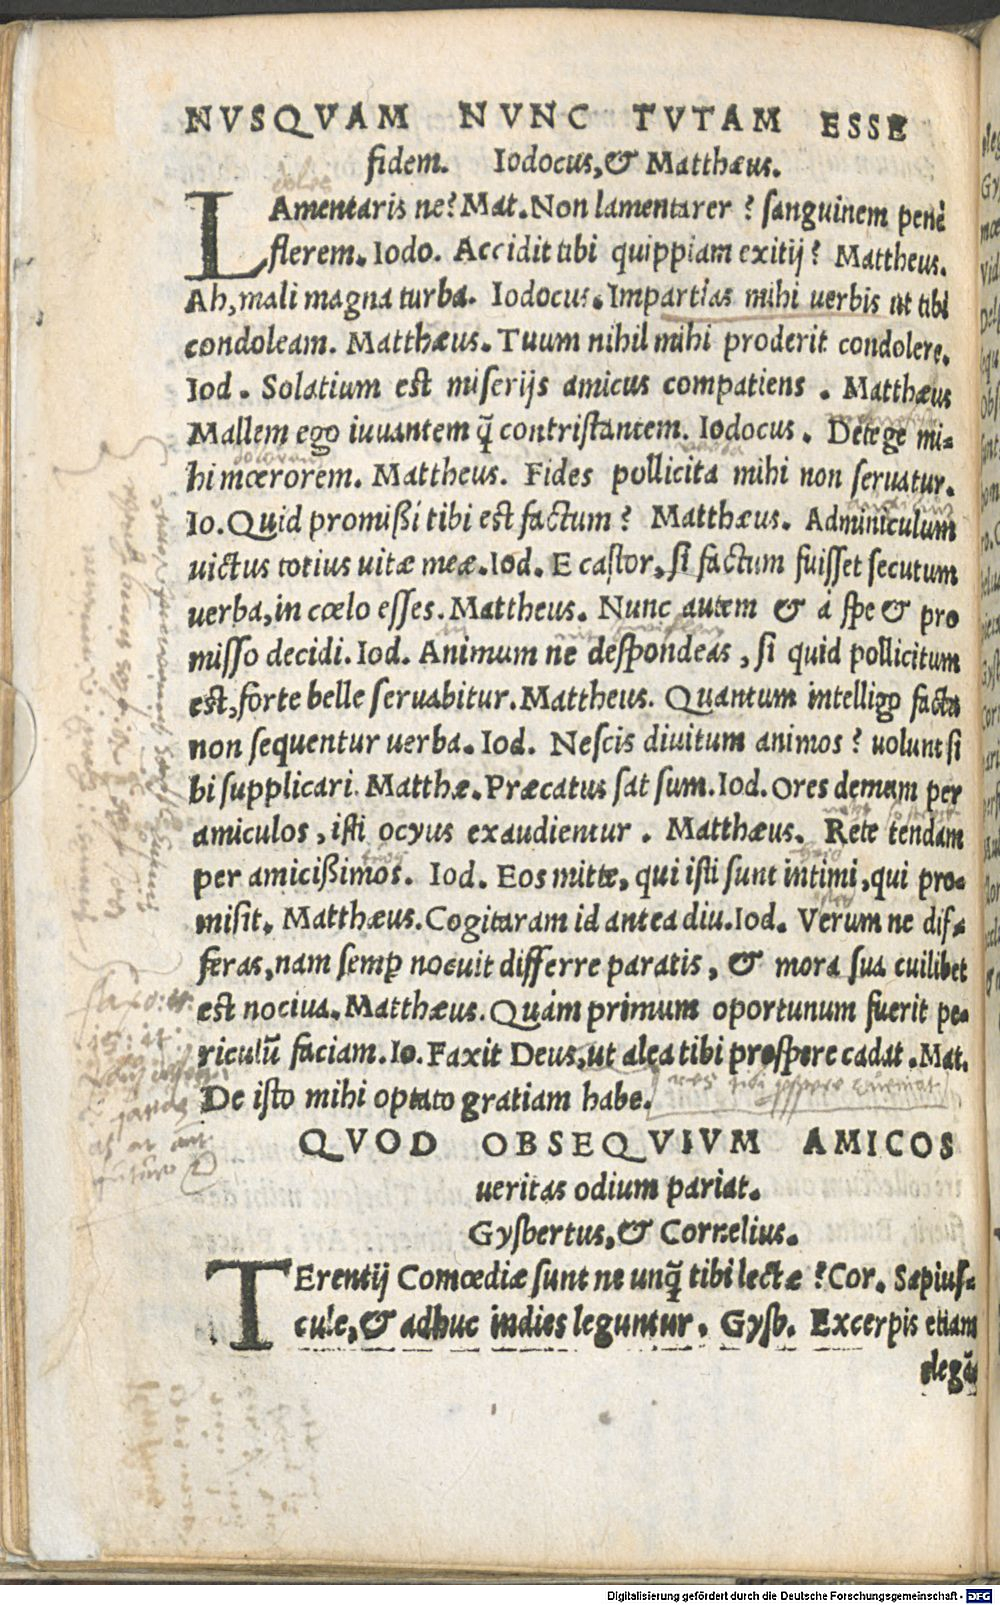 NVSQVAM NVNC TVTAM ESSE
fidem. Iodocus, & Matthæus.
LAmentaris ne? Mat. Non lamentarer? sanguinem penè
flerem. Iodo. Accidit tibi quippiam exitij? Mattheus.
Ah, mali magna turba. Iodocus. Impartias mihi uerbis ut tibi
condoleam. Matthæus. Tuum nihil mihi proderit condolere.
Iod. Solatium est miserijs amicus compatiens. Matthæus
Mallem ego iuuantem q̃ contristantem. Iodocus. Detege mi=
hi mœrorem. Mattheus. Fides pollicita mihi non seruatur.
Io. Quid promißi tibi est factum? Matthæus. Adminiculum
uictus totius uitæ meæ. Iod. E castor, si factum fuisset secutum
uerba, in cœlo esses. Mattheus. Nunc autem & à spe & pro
misso decidi. Iod. Animum ne despondeas, si quid pollicitum
est, forte belle seruabitur. Mattheus. Quantum intelligo facta
non sequentur uerba. Iod. Nescis diuitum animos? uolunt si
bi supplicari. Matthæ. Præcatus sat sum. Iod. Ores demum per
amiculos, isti ocyus exaudientur. Matthæus. Rete tendam
per amicißimos. Iod. Eos mitte, qui isti sunt intimi, qui pro=
misit. Matthæus. Cogitaram id antea diu. Iod. Verum ne dif=
feras, nam semꝑ nocuit differre paratis, & mora sua cuilibet
est nociua. Matthæus. Quàm primum oportunum fuerit pe=
riculũ faciam. Io. Faxit Deus, ut alea tibi prospere cadat. Mat.
De isto mihi optato gratiam habe.
QVOD OBSEQVIVM AMICOS
ueritas odium pariat.
Gysbertus, & Cornelius.
TErentij Comœdiæ sunt ne unq̃ tibi lectæ? Cor. Sæpius=
cule, & adhuc indies leguntur. Gysb. Excerpis etiam
elegã
Digitalisierung gefördert durch die Deutsche Forschungsgemeinschaft - DFG